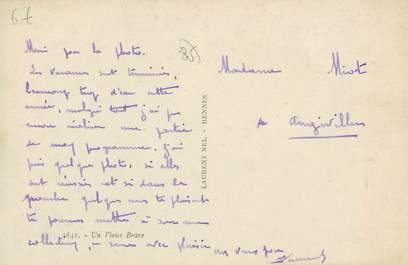 6 f
Merci pour la photo.
Les vacances sont terminées,
beaucoup trop d'eau cette
année, malgré tout j'ai pu
encore réaliser une partie
de mon programme. J'ai
pris quelques photos, si elles
sont réussies et si dans le
nombre quelques unes te plaisent
tu pourras mettre à
collection, avec plaisir
4641. - Un Vieux Brave
LAURENT NEL - RENNES
Madame Miot
à Angivilliers